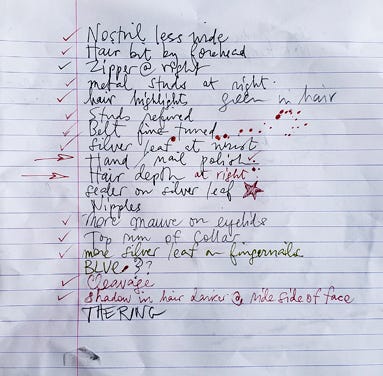 Nostril less wide
Hair bit by forehead
Zipper @ right
metal studs at right
hair highlight green in hair
Studs refined
Belt fine tuned
Silver leaf at wrist
Hand nail polish
Hair depth at right
sealer on silver leaf
Nipples
more mauve on eyelids
Top rim of Collar
more silver leaf on fingernails
BLUE ??
Cleavage
Shadow in hair darker @ side of face
THE RING